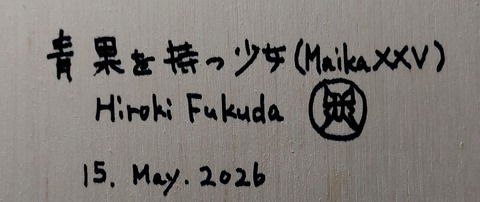 青果を持つ少女(Maika XXV)
Hiroki Fukuda
15. May. 2026